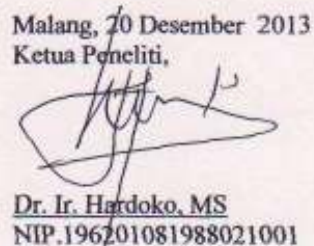 Malang, 20 Desember 2013
Ketua Peneliti,
Dr. Ir. Hardoko, MS
NIP.196201081988021001